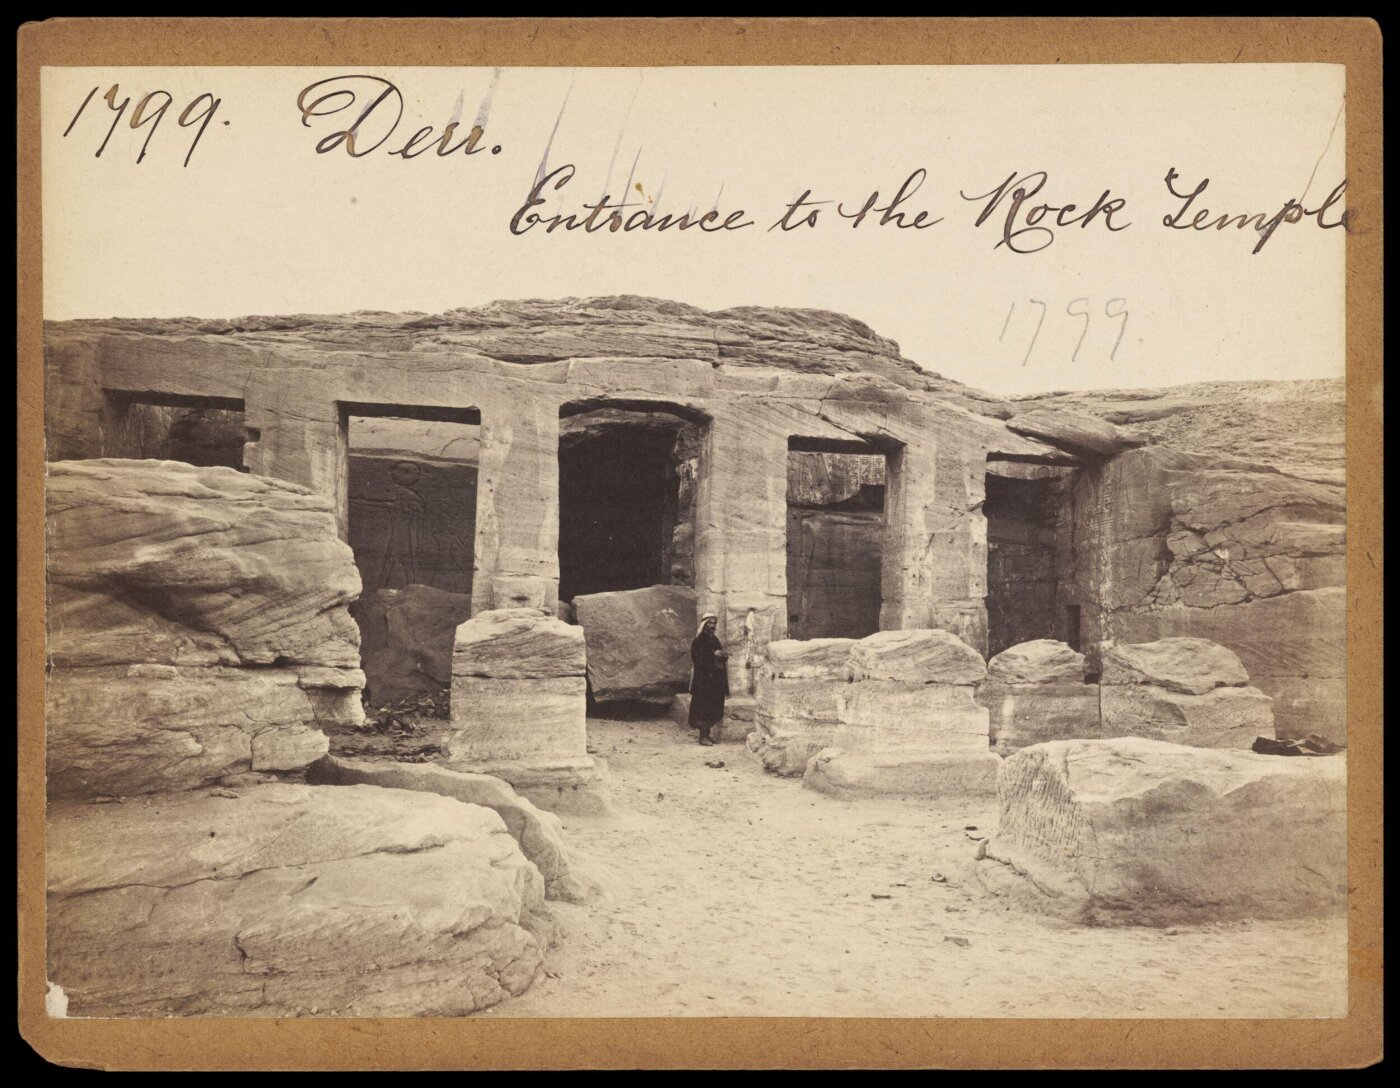 1799. Derr.
Entrance to the Rock Temple
1799.